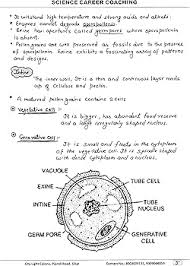 SCIENCE CAREER COACHING
• It withstand high temperature and strong acids and alkali.
• Enzymes cannot degrade sporopollenin.
• Exine has aperture called germpores where sporopollenin is absent.
• Pollen grains are well preserved as fossils due to the presence of sporopollenin. Exine exhibits a fascinating array of patterns and designs.
Intine
The inner wall, it is a thin and continuous layer made up of Cellulose and Pectin.
• A matured pollen grains contains 2 cells
① Vegetative cell :-
It is bigger, has abundant food reserve and a large irregularly shaped nucleus.
② Generative cell :-
It is small and floats in the cytoplasm of the vegetative cell. It is spindle shaped with dense cytoplasm and a nucleus.
VACUOLE
EXINE
INTINE
GERM PORE
TUBE CELL
TUBE NUCLEUS
GENERATIVE CELL
5